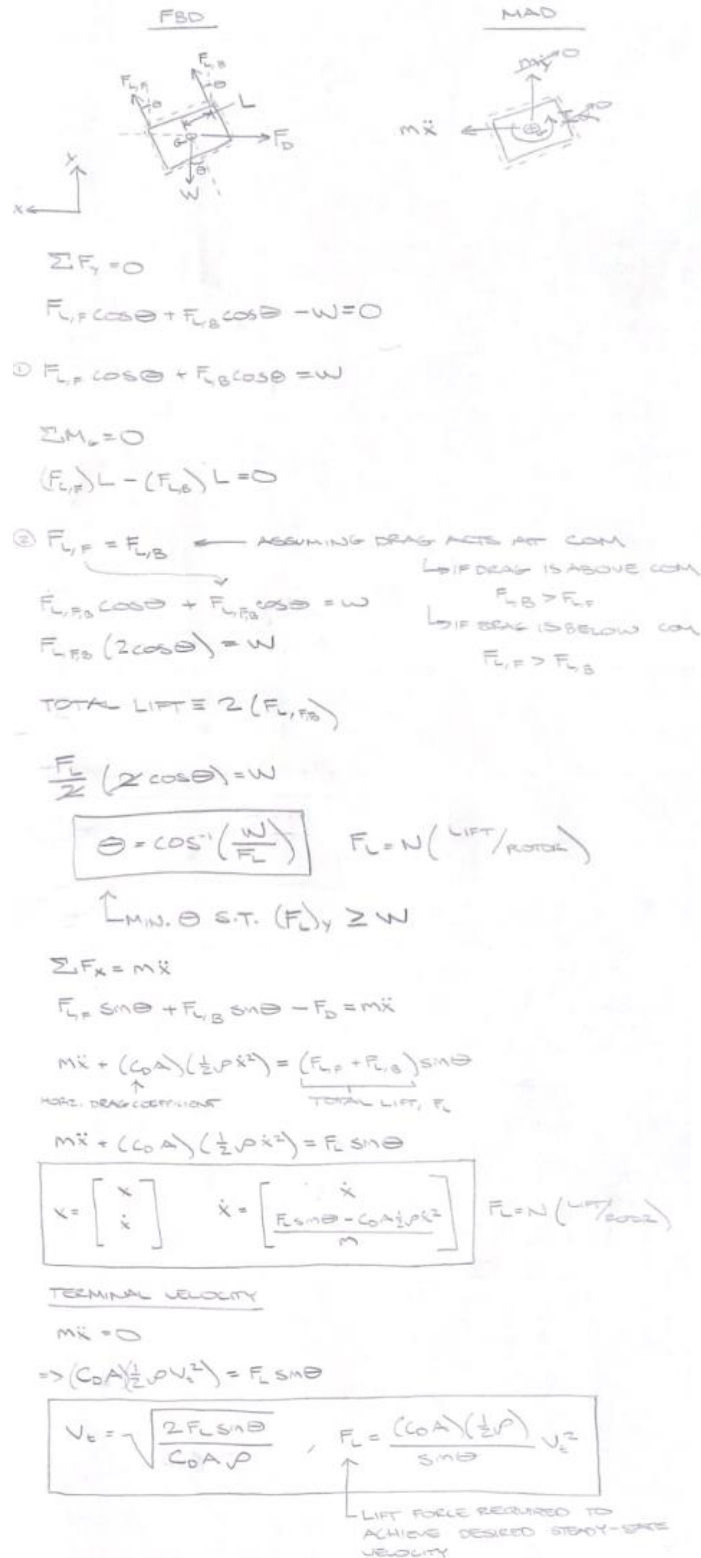 FBD
MAD
F_{L,F}
θ
F_{L,B}
θ
L
G
F_D
θ
W
y
x
mÿ 0
mẍ
0
ΣF_y = 0
F_{L,F} cosθ + F_{L,B} cosθ - W = 0
① F_{L,F} cosθ + F_{L,B} cosθ = W
ΣM_G = 0
(F_{L,F})L - (F_{L,B})L = 0
② F_{L,F} = F_{L,B} ← ASSUMING DRAG ACTS AT COM
↳ IF DRAG IS ABOVE COM
F_{L,B} > F_{L,F}
↳ IF DRAG IS BELOW COM
F_{L,F} > F_{L,B}
F_{L,FB} cosθ + F_{L,FB} cosθ = W
F_{L,FB} (2cosθ) = W
TOTAL LIFT ≡ 2(F_{L,FB})
F_L/2 (2 cosθ) = W
θ = cos⁻¹(W/F_L) F_L = N(LIFT/ROTOR)
MIN. θ S.T. (F_L)_y ≥ W
ΣF_x = mẍ
F_{L,F} sinθ + F_{L,B} sinθ - F_D = mẍ
mẍ + (C_D A)(½ρẋ²) = (F_{L,F} + F_{L,B}) sinθ
HORZ. DRAG COEFFICIENT TOTAL LIFT, F_L
mẍ + (C_D A)(½ρẋ²) = F_L sinθ
x = [x; ẋ] ẋ = [ẋ; (F_L sinθ - C_D A ½ρẋ²)/m] F_L = N(LIFT/ROTOR)
TERMINAL VELOCITY
mẍ = 0
=> (C_D A)(½ρV_t²) = F_L sinθ
V_t = √(2F_L sinθ / C_D A ρ) , F_L = (C_D A)(½ρ)/sinθ V_t²
LIFT FORCE REQUIRED TO
ACHIEVE DESIRED STEADY-STATE
VELOCITY